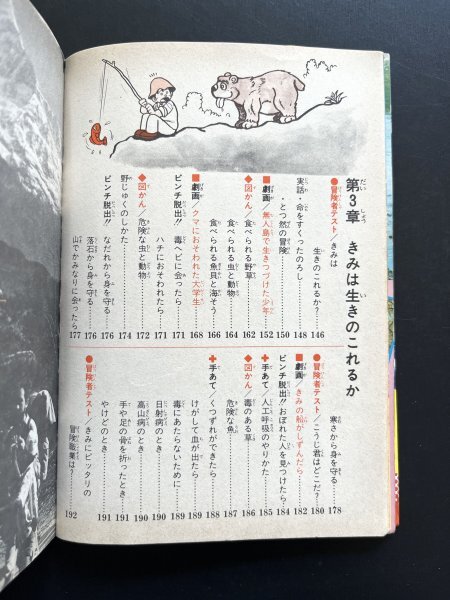 第3章 きみは生きのこれるか
●冒険者テスト/きみは
生きのこれるか?……146
実話・命をすくったのろし……148
・とつ然の冒険……150
■劇画/無人島で生きつづけた少年……152
◆図かん/食べられる野草……162
食べられる虫と動物……164
食べられる魚貝と海そう……166
■劇画/クマにおそわれた大学生……168
ピンチ脱出!! 毒ヘビに会ったら……171
ハチにおそわれたら……171
◆図かん/危険な虫と動物……172
野じゅくのしかた……174
ピンチ脱出!! なだれから身を守る……176
落石から身を守る……176
山でかみなりに会ったら……177
寒さから身を守る……178
●冒険者テスト/こうじ君はどこだ?……180
■劇画/きみの船がしずんだら……182
ピンチ脱出!! おぼれた人を見つけたら……184
✚手あて/人工呼吸のやりかた……185
◆図かん/毒のある草……186
危険な魚……187
✚手あて/くつずれができたら……188
けがして血が出たら……189
毒にあたらないために……189
日射病のとき……190
高山病のとき……190
手や足の骨を折ったとき……191
やけどのとき……191
●冒険者テスト/きみにピッタリの
冒険職業は?……192